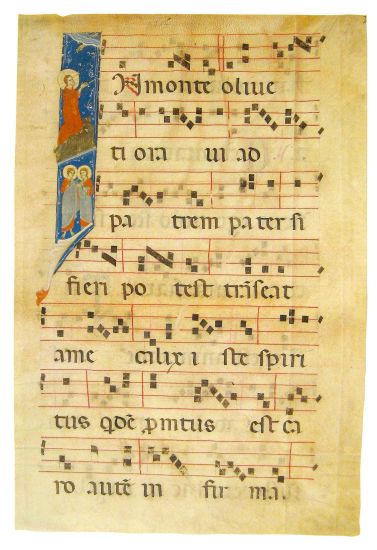 IN monte oliue
ti ora ui ad
pa trem pater si
fieri po test trãseat
ame calix i ste spiri
tus qdẽ ꝓmtus est ca
ro autẽ in fir ma.